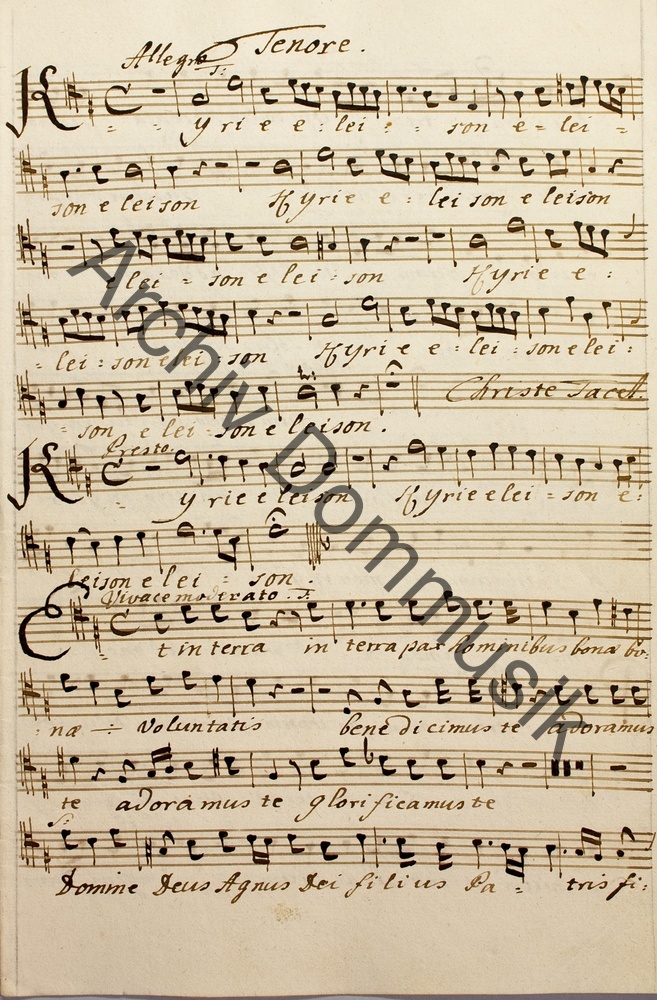 Tenore.
Allegro T:
Kyrie e e: lei : son e = lei =
son e leison Kyrie e : lei son e leison
e lei = son e lei : son Kyrie e :
lei : son e lei : son Kyrie e : lei : son e lei :
Christe Tacet.
son e lei : son e leison.
Presto.
Kyrie e leison Kyrie e lei = son e :
leison e lei = son.
Vivace moderato. T.
Et in terra in terra pax hominibus bona bo-
næ voluntatis benedicimus te adoramus
te adoramus te glorificamus te
Domine Deus Agnus Dei filius Pa = tris fi:
Archiv Dommusik